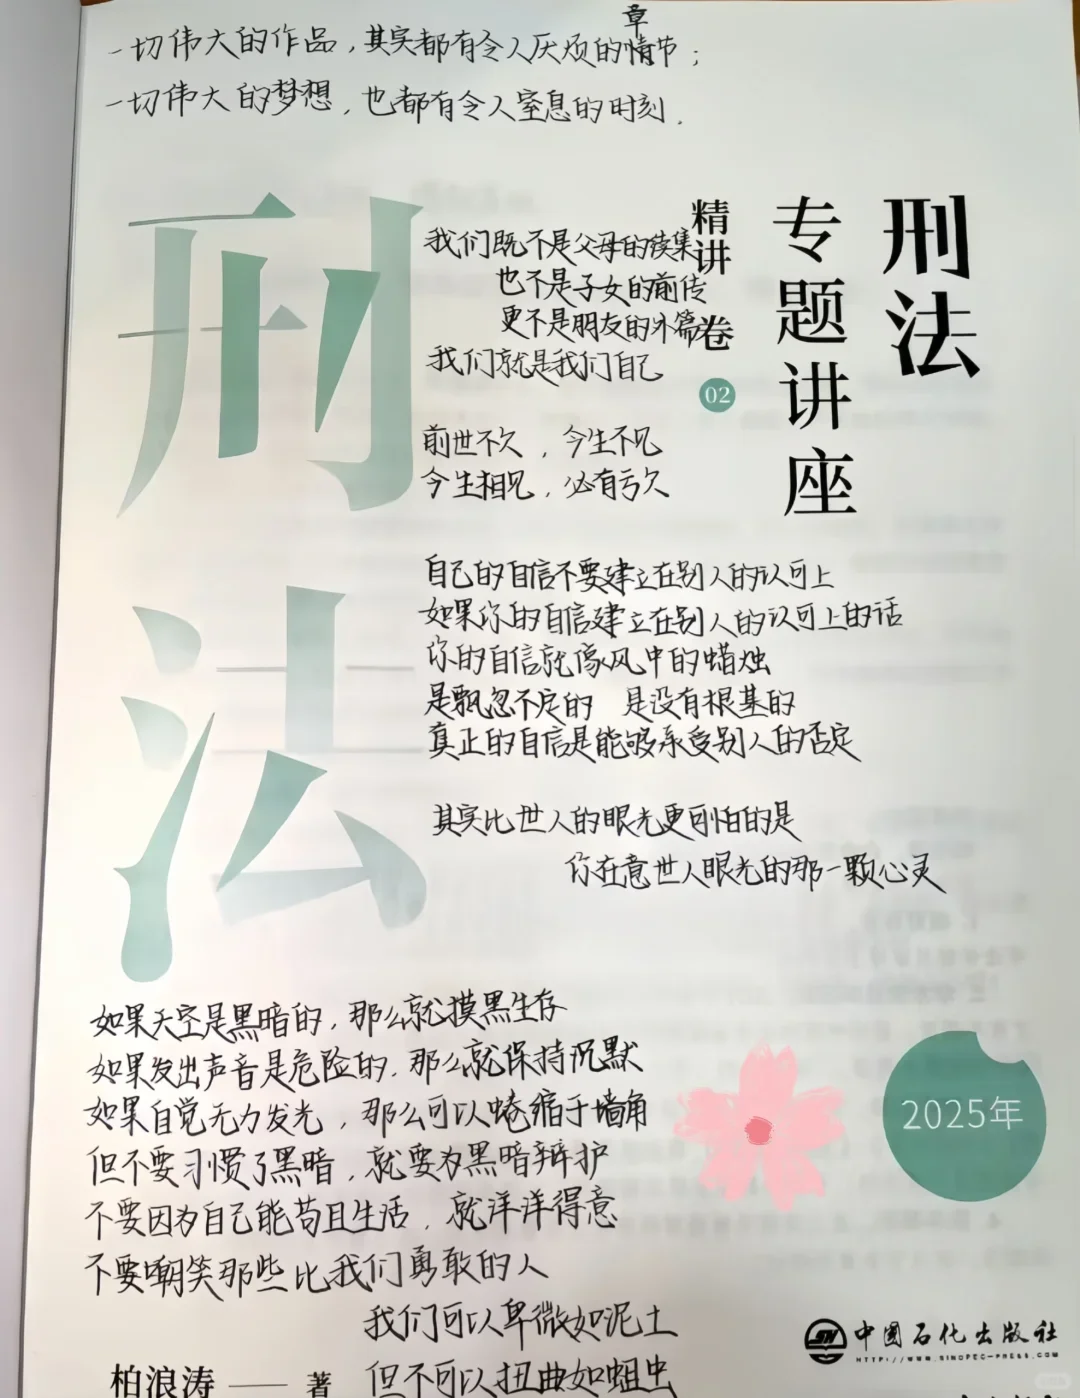 一切伟大的作品，其实都有令人厌烦的情节；
章
一切伟大的梦想，也都有令人窒息的时刻.
刑法
专题讲座
精讲卷
02
刑法
我们既不是父母的续集
也不是子女的前传
更不是朋友的外篇
我们就是我们自己
前世不欠，今生不见
今生相见，必有亏欠
自己的自信不要建立在别人的认可上
如果你的自信建立在别人的认可上的话
你的自信就像风中的蜡烛
是飘忽不定的 是没有根基的
真正的自信是能够承受别人的否定
其实比世人的眼光更可怕的是
你在意世人眼光的那一颗心灵
如果天空是黑暗的，那么就摸黑生存
如果发出声音是危险的，那么就保持沉默
如果自觉无力发光，那么可以蜷缩于墙角
但不要习惯了黑暗，就要为黑暗辩护
不要因为自己能苟且生活，就洋洋得意
不要嘲笑那些比我们勇敢的人
我们可以卑微如泥土
但不可以扭曲如蛆虫
2025年
柏浪涛——著
中国石化出版社
HTTP://WWW.SINOPEC-PRESS.COM